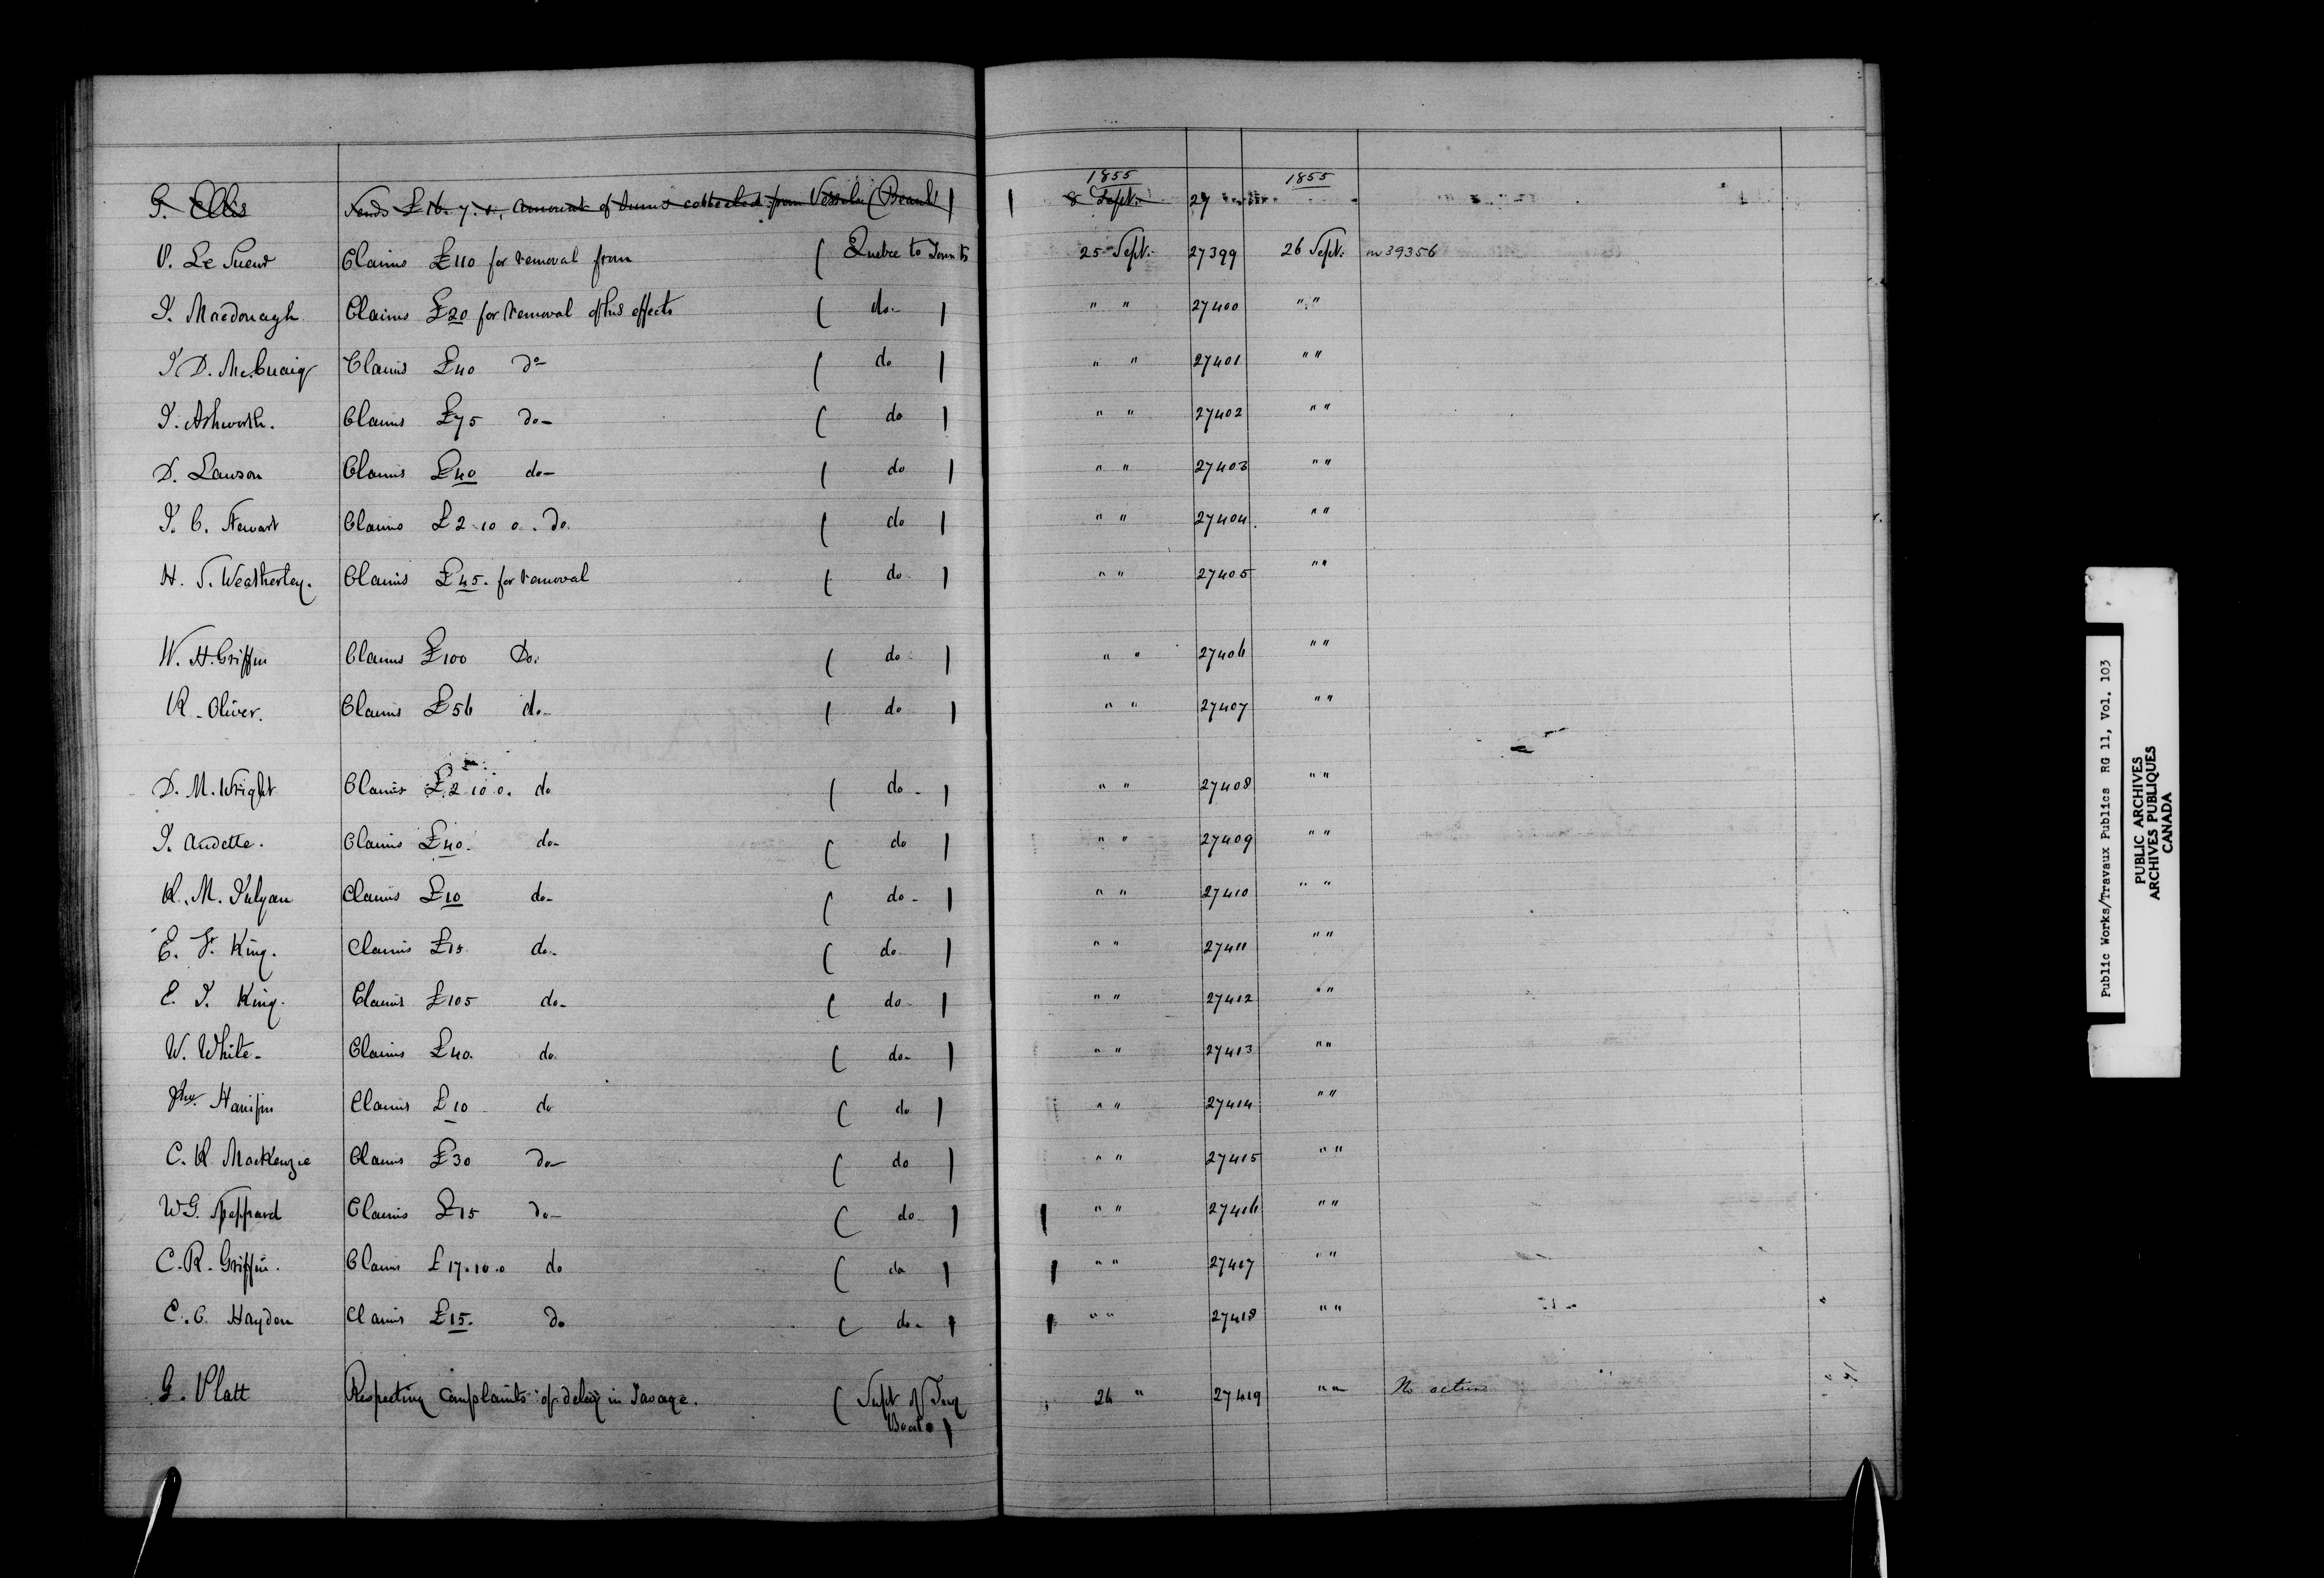 1855 1855
G. Ellis Sends £16. 7. 1, amount of sums collected from Vessels (Beauh) 8 Sept. 27
P. Le Sueur Claims £110 for removal from ( Quebec to Toronto 25 Sept. 27399 26 Sept. m 39356
J. Macdonagh Claims £20 for removal of his effects ( do ) " " 27400 " "
J. D. McCuaig Claims £40 do ( do ) " " 27401 " "
J. Ashworth. Claims £75 do ( do ) " " 27402 " "
D. Lawson Claims £40 do ( do ) " " 27403 " "
J. C. Stewart Claims £2 10 0. do. ( do ) " " 27404. " "
H. S. Weatherley. Claims £45. for removal ( do ) " " 27405 " "
W. H. Griffin Claims £100 Do. ( do ) " " 27406 " "
R. Oliver. Claims £56 do ( do ) " " 27407 " "
D. M. Wright Claims £2 10 0. do ( do ) " " 27408 " "
J. Audette. Claims £40. do ( do ) " " 27409 " "
R. M. Claims £10 do ( do ) " " 27410 " "
E. F. King. Claims £15 do ( do ) " " 27411 " "
E. J. King. Claims £105 do ( do ) " " 27412 " "
W. White Claims £40. do. ( do ) " " 27413 " "
Hanifin Claims £10 do ( do ) " " 27414 " "
C. R. MacKenzie Claims £30 do ( do ) " " 27415 " "
W. G. Sheppard Claims £15 do ( do ) " " 27416 " "
C. R. Griffin. Claims £17.10.0 do ( do ) " " 27417 " "
E. C. Hayden Claims £15. do ( do ) " " 27418 " "
G. Platt Respecting complaints of delay in Towage. ( Supt of Tug 26 " 27419 " " No action
Boats )
Public Works/Travaux Publics RG 11, Vol. 103
PUBLIC ARCHIVES
ARCHIVES PUBLIQUES
CANADA